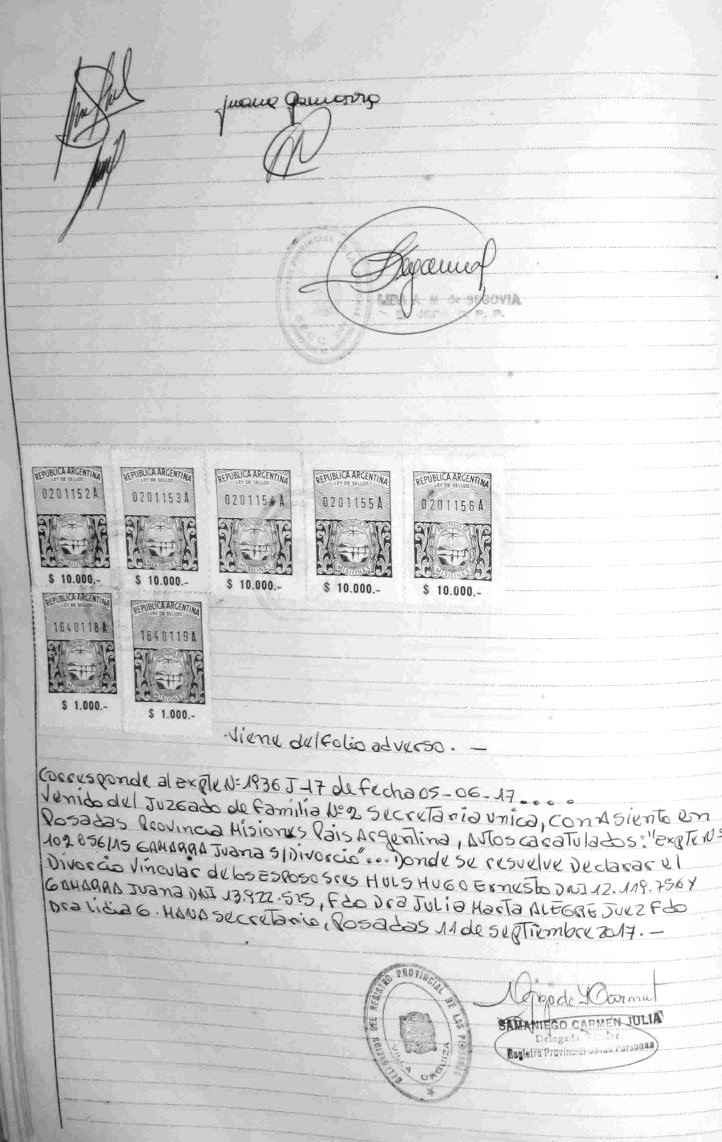 Juana Gamarra
LIDIA A. M. de SEGOVIA
REPUBLICA ARGENTINA
LEY DE SELLOS
0201152A
MISIONES
$ 10.000.-
REPUBLICA ARGENTINA
LEY DE SELLOS
0201153A
MISIONES
$ 10.000.-
REPUBLICA ARGENTINA
LEY DE SELLOS
0201154A
MISIONES
$ 10.000.-
REPUBLICA ARGENTINA
LEY DE SELLOS
0201155A
MISIONES
$ 10.000.-
REPUBLICA ARGENTINA
LEY DE SELLOS
0201156A
MISIONES
$ 10.000.-
REPUBLICA ARGENTINA
LEY DE SELLOS
1640118A
MISIONES
$ 1.000.-
REPUBLICA ARGENTINA
LEY DE SELLOS
1640119A
MISIONES
$ 1.000.-
.Viene del folio adverso. —
Corresponde al expte Nº 1936 J-17 de fecha 05-06-17....
Venido del Juzgado de familia Nº2 Secretaria unica, con Asiento en
Posadas Provincia Misiones Pais Argentina, Autos caratulados: "expte Nº
102856/15 GAMARRA Juana S/Divorcio"... Donde se resuelve Declarar el
Divorcio Vincular de los ESPOSOS Sres HULS HUGO Ernesto DNI 12.119.756 Y
GAMARRA Juana DNI 13.922.515, Fdo Dra Julia Marta ALEGRE JUEZ Fdo
Dra lidia G. secretario, Posadas 11 de septiembre 2017. —
DELEGACION DEL REGISTRO PROVINCIAL DE LAS PERSONAS
VILLA URQUIZA
SAMANIEGO CARMEN JULIA
Delegada Titular
Registro Provincial de las Personas